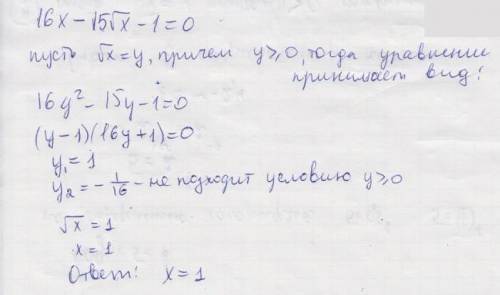 16x - 15√x - 1 = 0
пусть √x = y, причем y ≥ 0, тогда уравнение
принимает вид:
16y² - 15y - 1 = 0
(y - 1)(16y + 1) = 0
y₁ = 1
y₂ = - 1/16 - не подходит условию y ≥ 0
√x = 1
x = 1
Ответ: x = 1